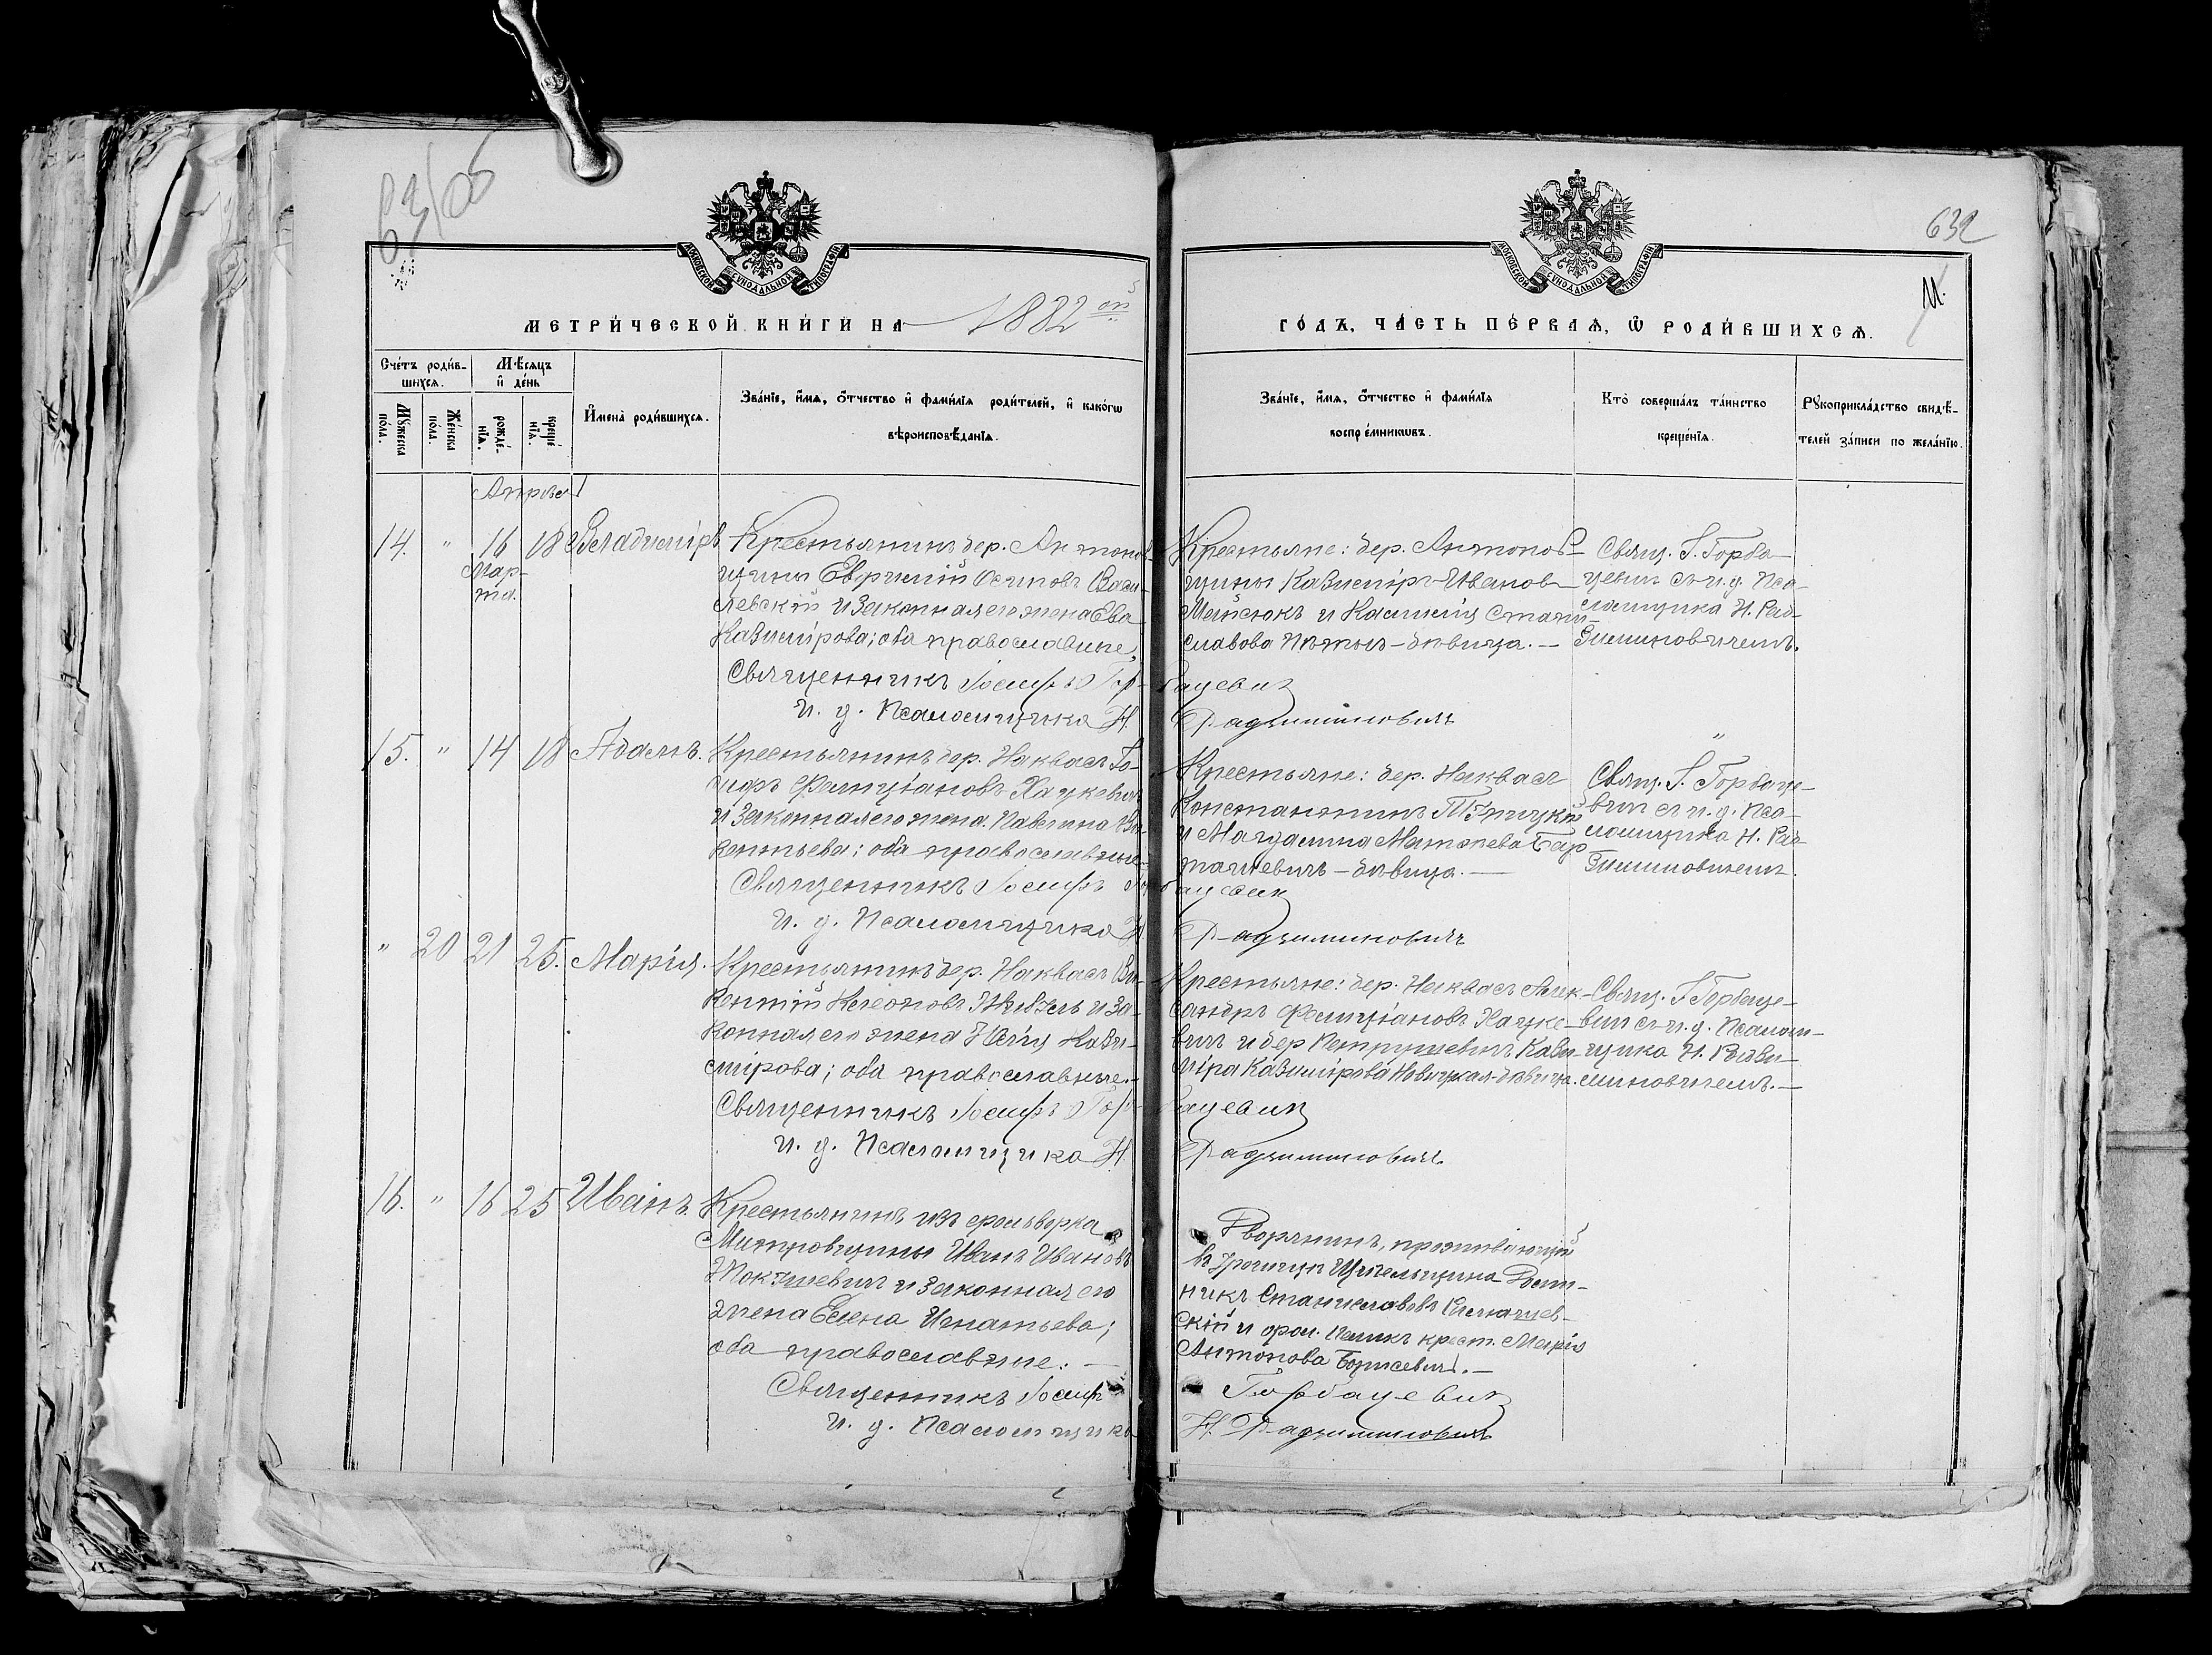 632
МОСКОВСКОЙ СѴНОДАЛЬНОЙ ТИПОГРАФІИ
МОСКОВСКОЙ СѴНОДАЛЬНОЙ ТИПОГРАФІИ
МЕТРИ́ЧЕСКОЙ КНИ́ГИ НА 1882 ой
ГО́ДЪ, ЧА́СТЬ ПЕ́РВАѦ, Ѿ РОДИ́ВШИХСѦ.
Сче́тъ роди́в-
шихсѧ.
Мꙋ́жеска по́ла.
Же́нска по́ла.
Мѣ́сѧцъ и де́нь
рожде́нїѧ.
креще́нїѧ.
И҆мена̀ роди́вшихсѧ.
Зва́нїе, и҆́мѧ, ѻ҆́тчество и҆ фами́лїѧ роди́телей, и҆ како́гѡ
вѣроисповѣ́данїѧ.
Зва́нїе, и҆́мѧ, ѻ҆́тчество и҆ фами́лїѧ
воспрїе́мникѡвъ.
Кто̀ соверша́лъ та́инство
креще́нїѧ.
Рꙋкоприкла́дство свидѣ́-
телей за́писи по жела́нїю.
14. " 16 Мар-та. 18 Владиміръ
Крестьянинъ дер. Антонов-
щины Евфимій Осиповъ Васи-
левскій и законная его жена Ева
Казимірова; оба православные,
Священникъ Іосифъ Гор-бацевич
и. д. Псаломщика Н. Радзиминовичъ
Крестьяне: дер. Антонов-
щины Казиміръ Ивановъ
и
славова дѣвица. —
Свящ. І. Горба-
цевич съ и. д. Пса-
ломщика Н. Рад-
зиминовичемъ.
15. " 14 18 Адамъ.
Крестьянинъ дер. Наквасъ Іо-
сифъ Фелиціановъ Хацкевичъ
и законная его жена Павлина Ви-
кентьева; оба православные
Священникъ Іосифъ Горбацевич
и. д. Псаломщика Н. Радзиминовичъ
Крестьяне: дер. Наквасъ
Константинъ
и Магдалина Матѳеева
дѣвица. —
Свящ. І. Горбаце-
вич съ и. д. Пса-
ломщика Н. Рад-
зиминовичемъ.
" 20 21 25. Марія.
Крестьянинъ дер. Наквасъ Ви-
кентій и за-
конная его жена Кази-
мірова; оба православные.
Священникъ Іосифъ Горбацевич
и. д. Псаломщика Н. Радзиминовичъ.
Крестьяне: дер. Наквасъ Алек-
сандръ Фелиціановъ Хацке-
вичъ и дер. Петрушевичъ Кази-
міра Казимірова Новицкая-дѣвица.
Свящ. І. Горбаце-
вич съ и. д. Псалом-
щика Н. Радзи-
миновичемъ. —
16. " 16 25 Иванъ.
Крестьянинъ изъ фольварка
Митровщины Иванъ Ивановъ
и законная его
жена Елена Игнатьева;
оба православные. —
Священникъ Іосифъ Горбацевич
и. д. Псаломщика Н. Радзиминовичъ
Дворянинъ, проживающій
въ урочищѣ Доми-
никъ Станиславовъ
и крест. Марія
Антонова Борисевичъ. —